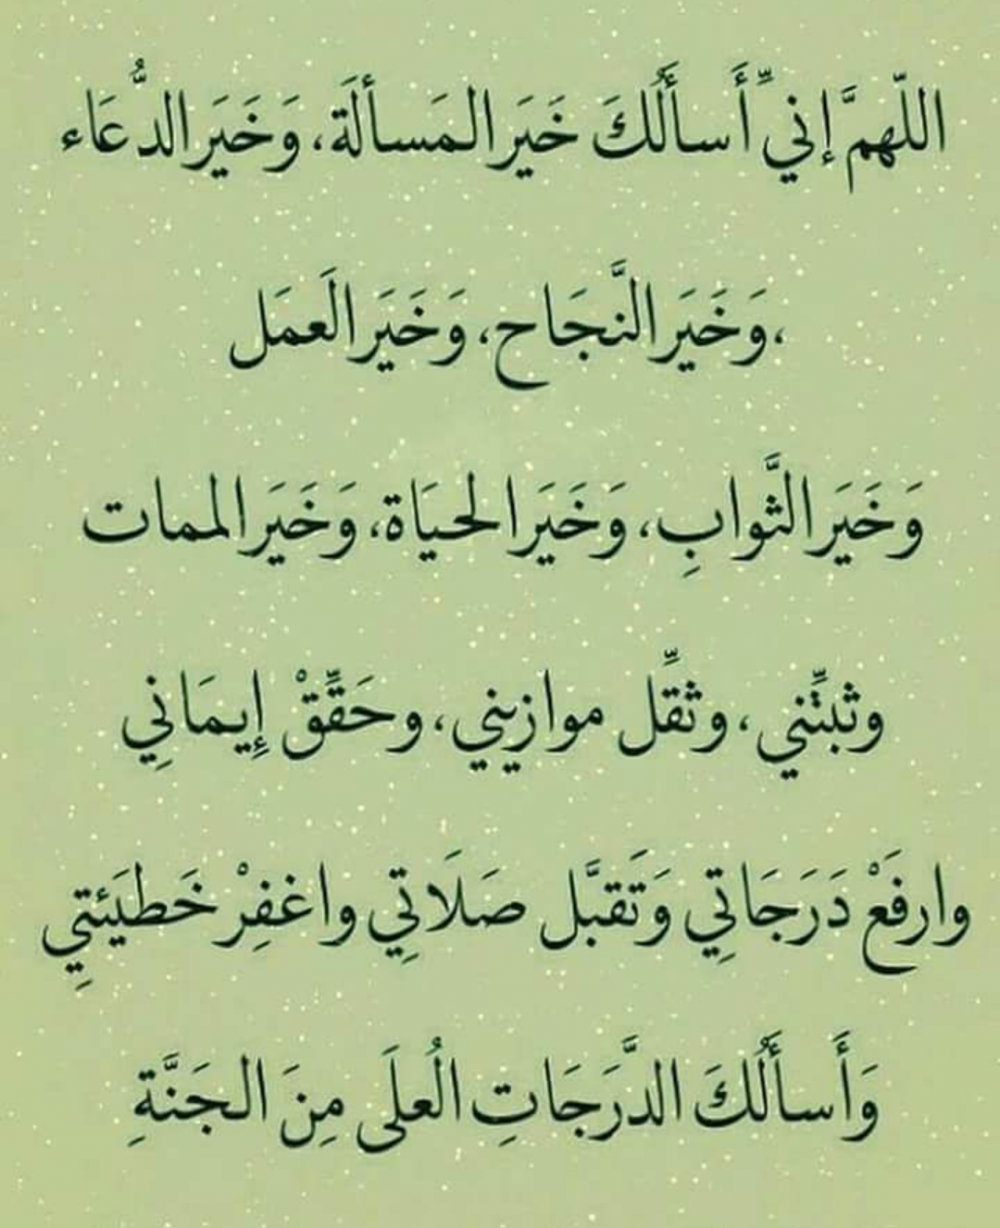 اللّهمَّ إنيِّ أَسأَلُكَ خَيَر المَسألَة، وَخَيَر الدُّعَاء
،وَخَيَر النَّجَاح، وَخَيَر العَمَل
وَخَيَر الثَّوابِ، وَخَيَر الحيَاة، وَخَيَر الممات
وثبتِّني، وثقِّل موازيني، وحَقِّقْ إِيمَانِي
وارفَعْ دَرَجَاتِي وَتَقبَّل صَلَاتِي واغفِرْ خَطيَئتِي
وَأَسأَلُكَ الدَّرَجَاتِ الُعلَى مِنَ الجَنَّةِ